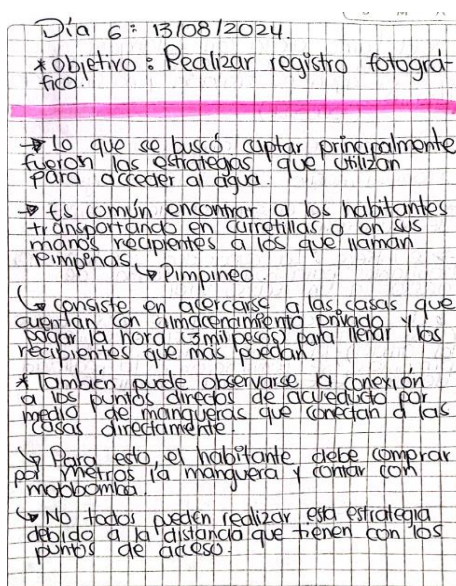 Día 6: 13/08/2024.
* Objetivo: Realizar registro fotográ-
fico.
→ lo que se buscó captar principalmente
fueron las estrategas que utilizan
para acceder al agua.
→ Es común encontrar a los habitantes
transportando en carretillas o en sus
manos recipientes a los que llaman
Pimpinas ↳ Pimpineo.
↳ consiste en acercarse a las casas que
cuentan con almacenamiento privado y
pagar la hora (3 mil pesos) para llenar los
recibientes que más puedan.
* También puede observarse la conexión
a los puntos directos de acueducto por
medio de mangueras que conectan a las
casas directamente.
↳ Para esto, el habitante debe comprar
por metros la manguera y contar con
motobomba.
↳ No todos pueden realizar esta estrategia
debido a la distancia que tienen con los
puntos de acceso.